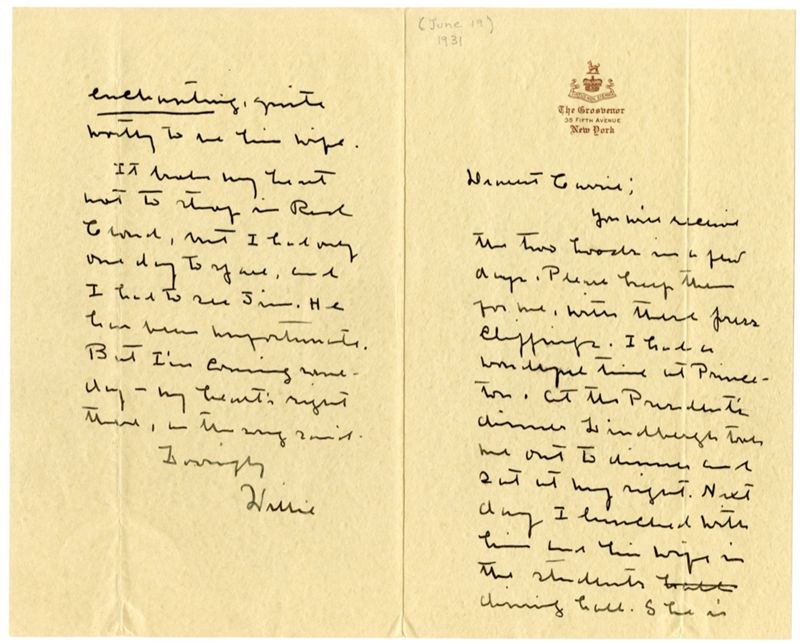 (June 19)
1931
The Grosvenor
35 FIFTH AVENUE
New York
Dearest Carrie;
You will receive
the two hoods in a few
days. Please keep them
for me, with these press
clippings. I had a
wonderful time at Prince-
ton. At the President's
dinner Lindbergh took
me out to dinner and
sat at my right. Next
day I lunched with
him and his wife in
the students hall
dining hall. She is
enchanting, quite
worthy to be his wife.
It breaks my heart
not to stop in Red
Cloud, but I had only
one day to spare, and
I had to see Jim. He
has been unfortunate.
But I'm coming some-
day – my heart's right
there, as the song said.
Lovingly
Willie